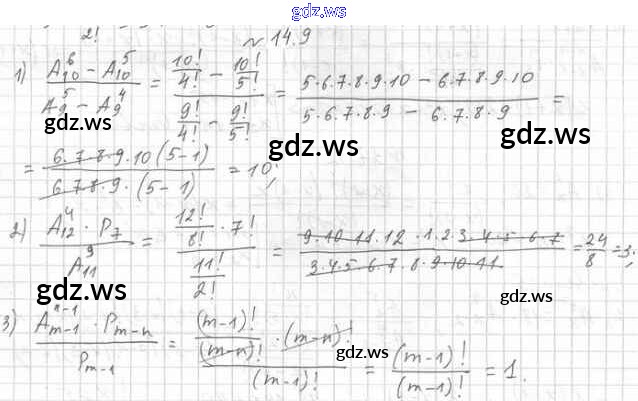 gdz.ws
2!
№ 14.9
1) (A₁₀⁶ − A₁₀⁵)/(A₉⁵ − A₉⁴) = (10!/4! − 10!/5!)/(9!/4! − 9!/5!) = (5·6·7·8·9·10 − 6·7·8·9·10)/(5·6·7·8·9 − 6·7·8·9) =
gdz.ws gdz.ws gdz.ws
= (6·7·8·9·10(5−1))/(6·7·8·9·(5−1)) = 10;
2) (A₁₂⁴ · P₇)/A₁₁⁹ = (12!/8! · 7!)/(11!/2!) = (9·10·11·12·1·2·3·4·5·6·7)/(3·4·5·6·7·8·9·10·11) = 24/8 = 3;
gdz.ws gdz.ws gdz.ws
3) (Aₘ₋₁ⁿ⁻¹ · Pₘ₋ₙ)/Pₘ₋₁ = ((m−1)!/(m−n)! · (m−n)!)/(m−1)! = (m−1)!/(m−1)! = 1.
gdz.ws